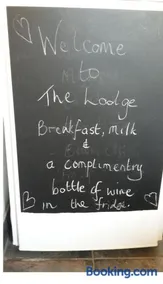 Welcome
to
The Lodge
Breakfast, milk
&
a complimentry
bottle of wine
in the fridge.
Booking.com